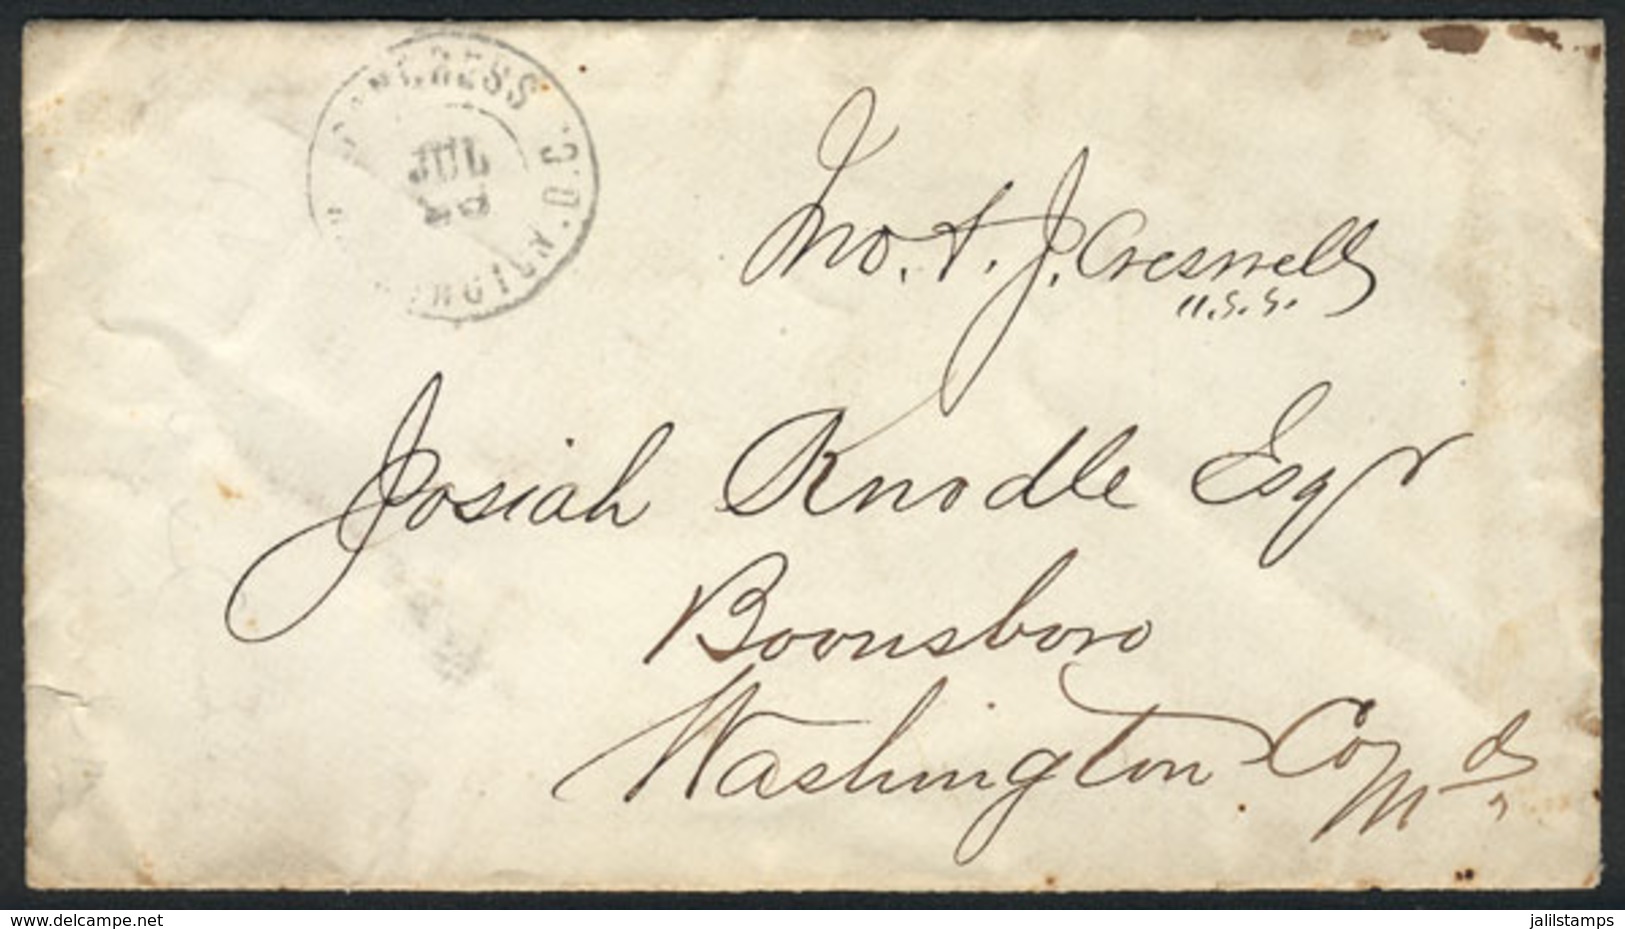 CONGRESS
JUL
WASHINGTON. D.C.
Jno. A. J. Creswell
U.S.S.
Josiah Knodle Esqr
Boonsboro
Washington Co
Md
www.delcampe.net
jalilstamps